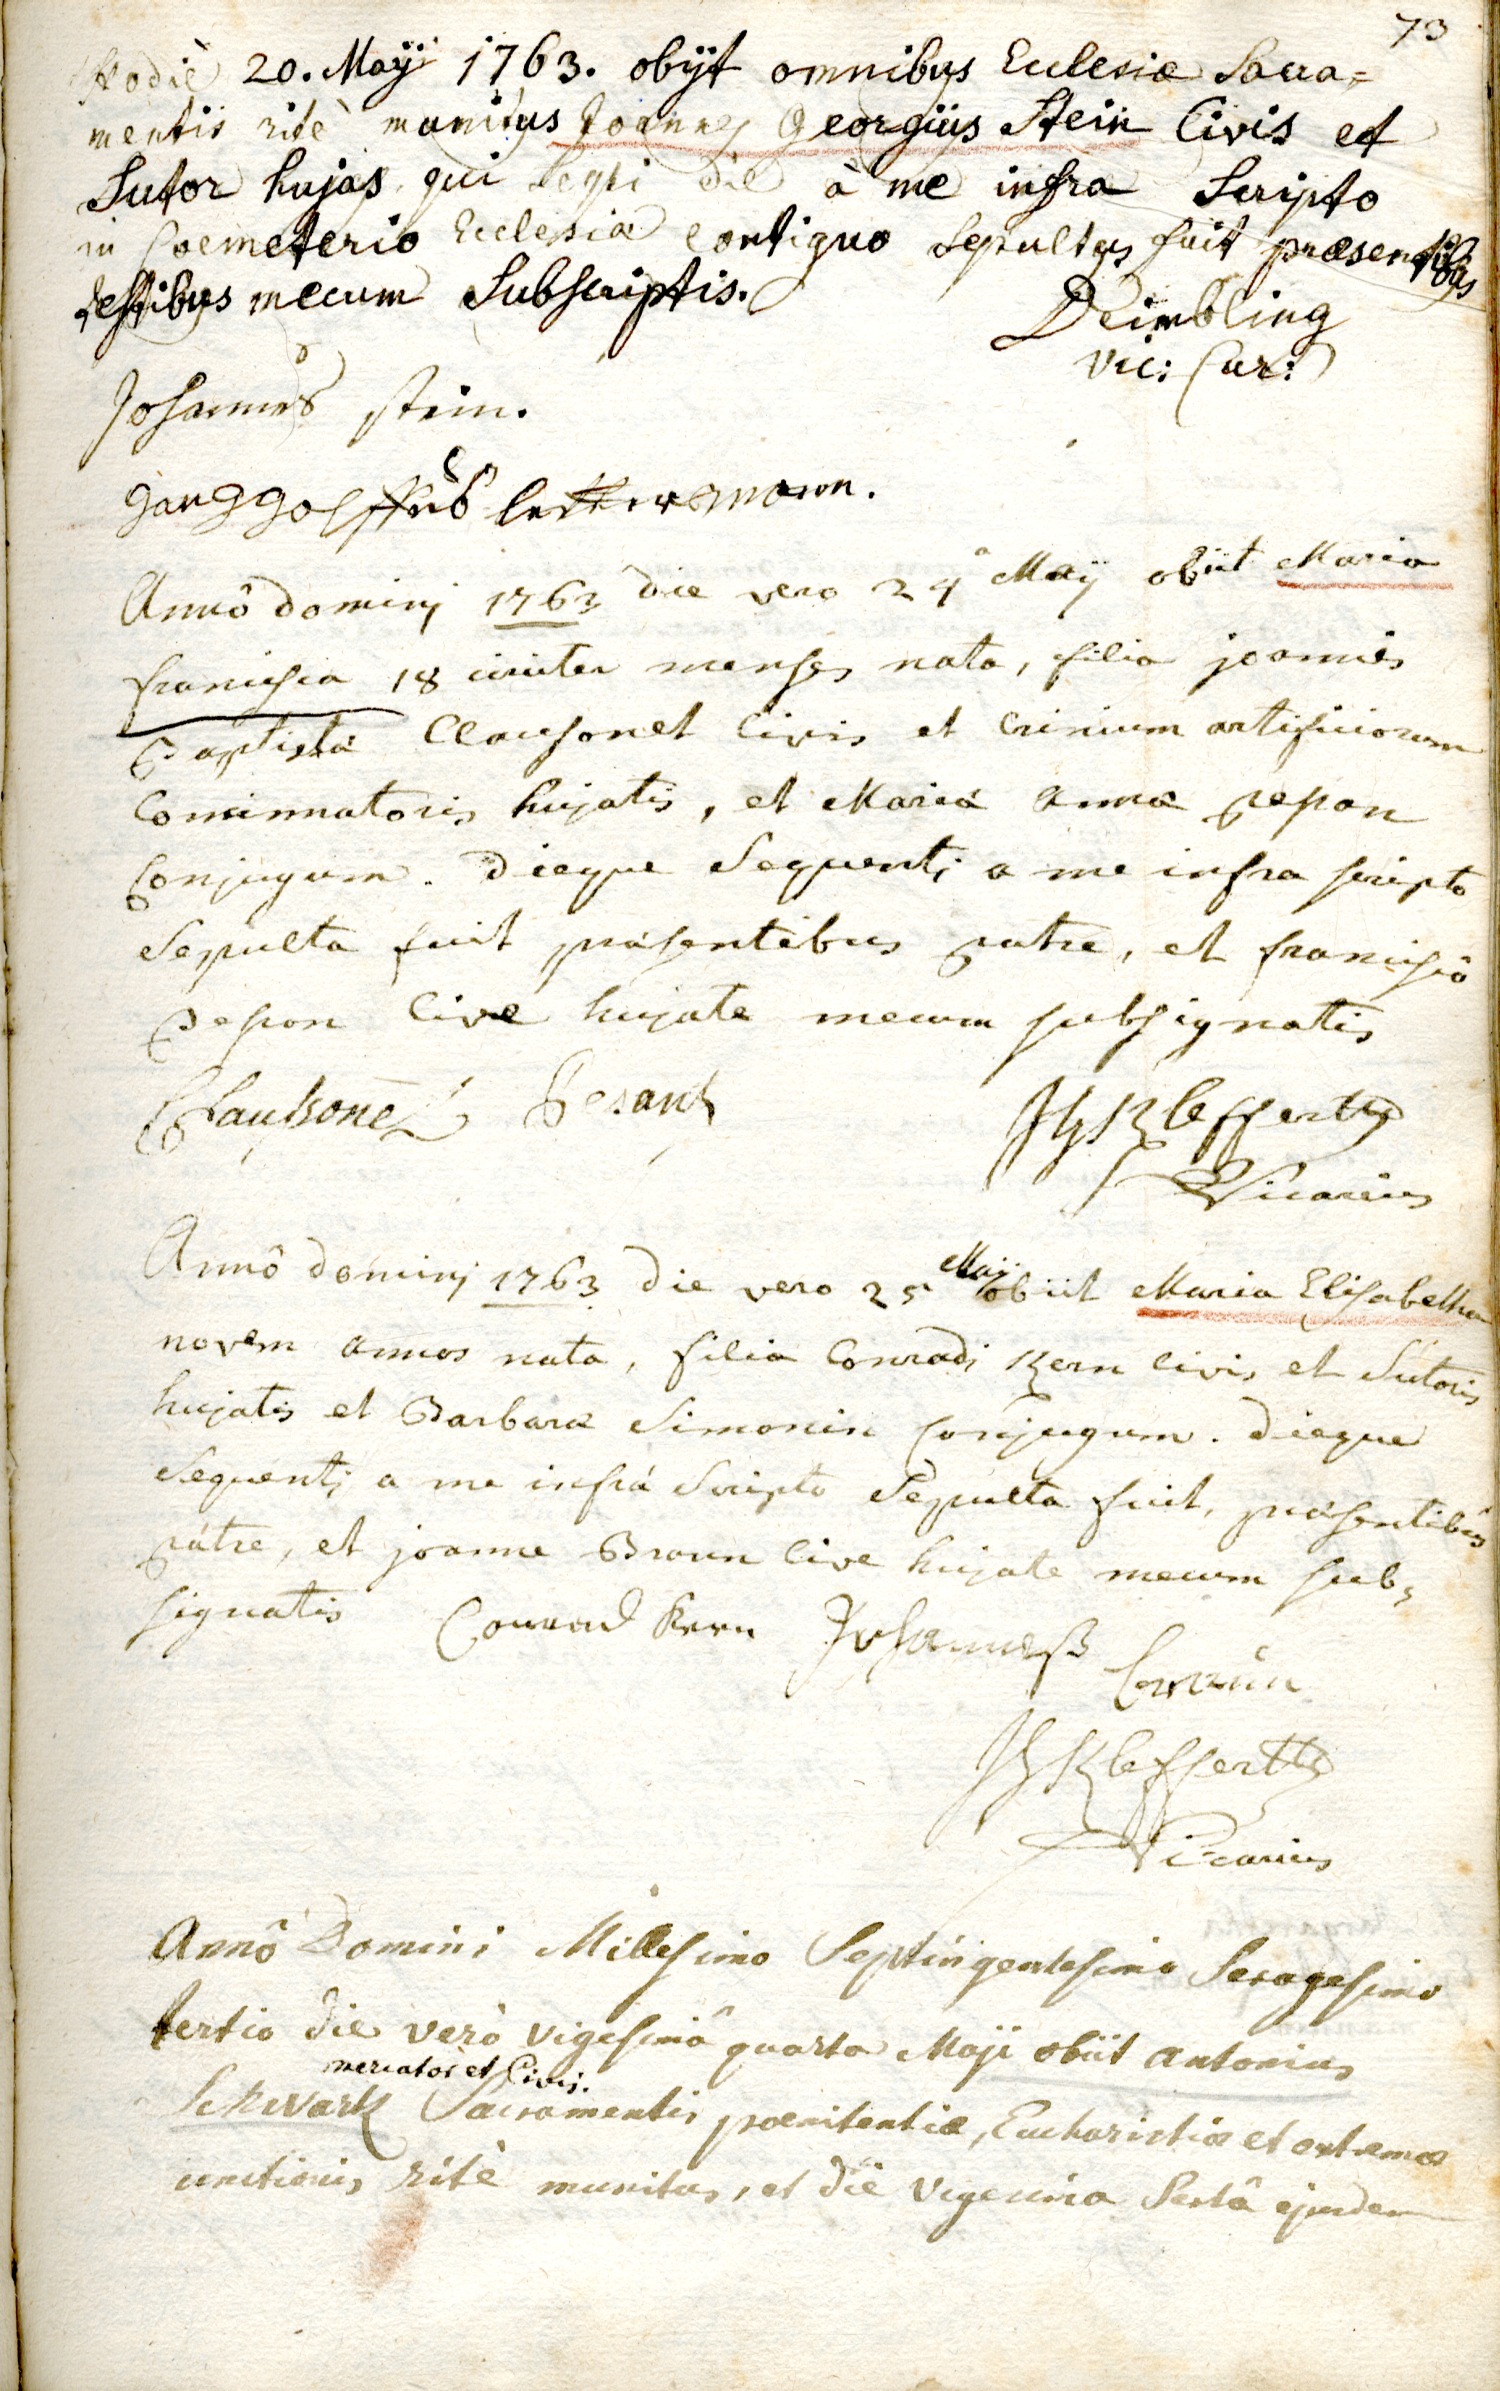 73
Hodiè 20. Maÿi 1763. obÿt omnibus Ecclesiæ Sacra=
mentis ritè munitus Joannes Georgius Stein Civis et
Sutor hujas, qui seq̃ti die à me infra Scripto
in Coemeterio Ecclesiæ contiguo Sepultus fuit præsentibus
testibus mecum Subscriptis.
Deimbling
Vic: Cur:
Johannes Stein.
ganggolffus
Annô dominj 1763 die vero 24â Maÿ obiit Maria
francisca 18 circiter menses nata, filia joannis
Baptistæ Clausonet Civis et Crinium artificiorum
Concinnatoris hujatis, et Mariæ Annæ pesan
Conjugum. Dieque Sequentj a me infra scripto
Sepulta fuit præsentibus patre, et franciscô
pesan Cive hujate mecum subsignatis
Claussonet Besant
Kleffert
Vicarius
Annô dominj 1763 die vero 25 Maji obiit Maria Elisabetha
novem annos nata, filia Conradj Kern Civis et Sutoris
hujatis et Barbaræ Simonin Conjugum. Dieque
Sequentj a me infrá Scripto Sepulta fuit, præsentibus
patre, et joanne Braun Cive hujate mecum sub=
signatis Conrad Kern Johanneß
braun
Kleffert
Vicarius
Annô Domini Millesimo Septingentesimo Sexagesimo
tertio die verò vigesimâ quarta Maji obiit Antonius
mercator et Civis.
Schwartz Sacramentis pœnitentiæ, Eucharistiæ et extremæ
unctionis ritè munitus, et die vigesima Sextâ ejusdem